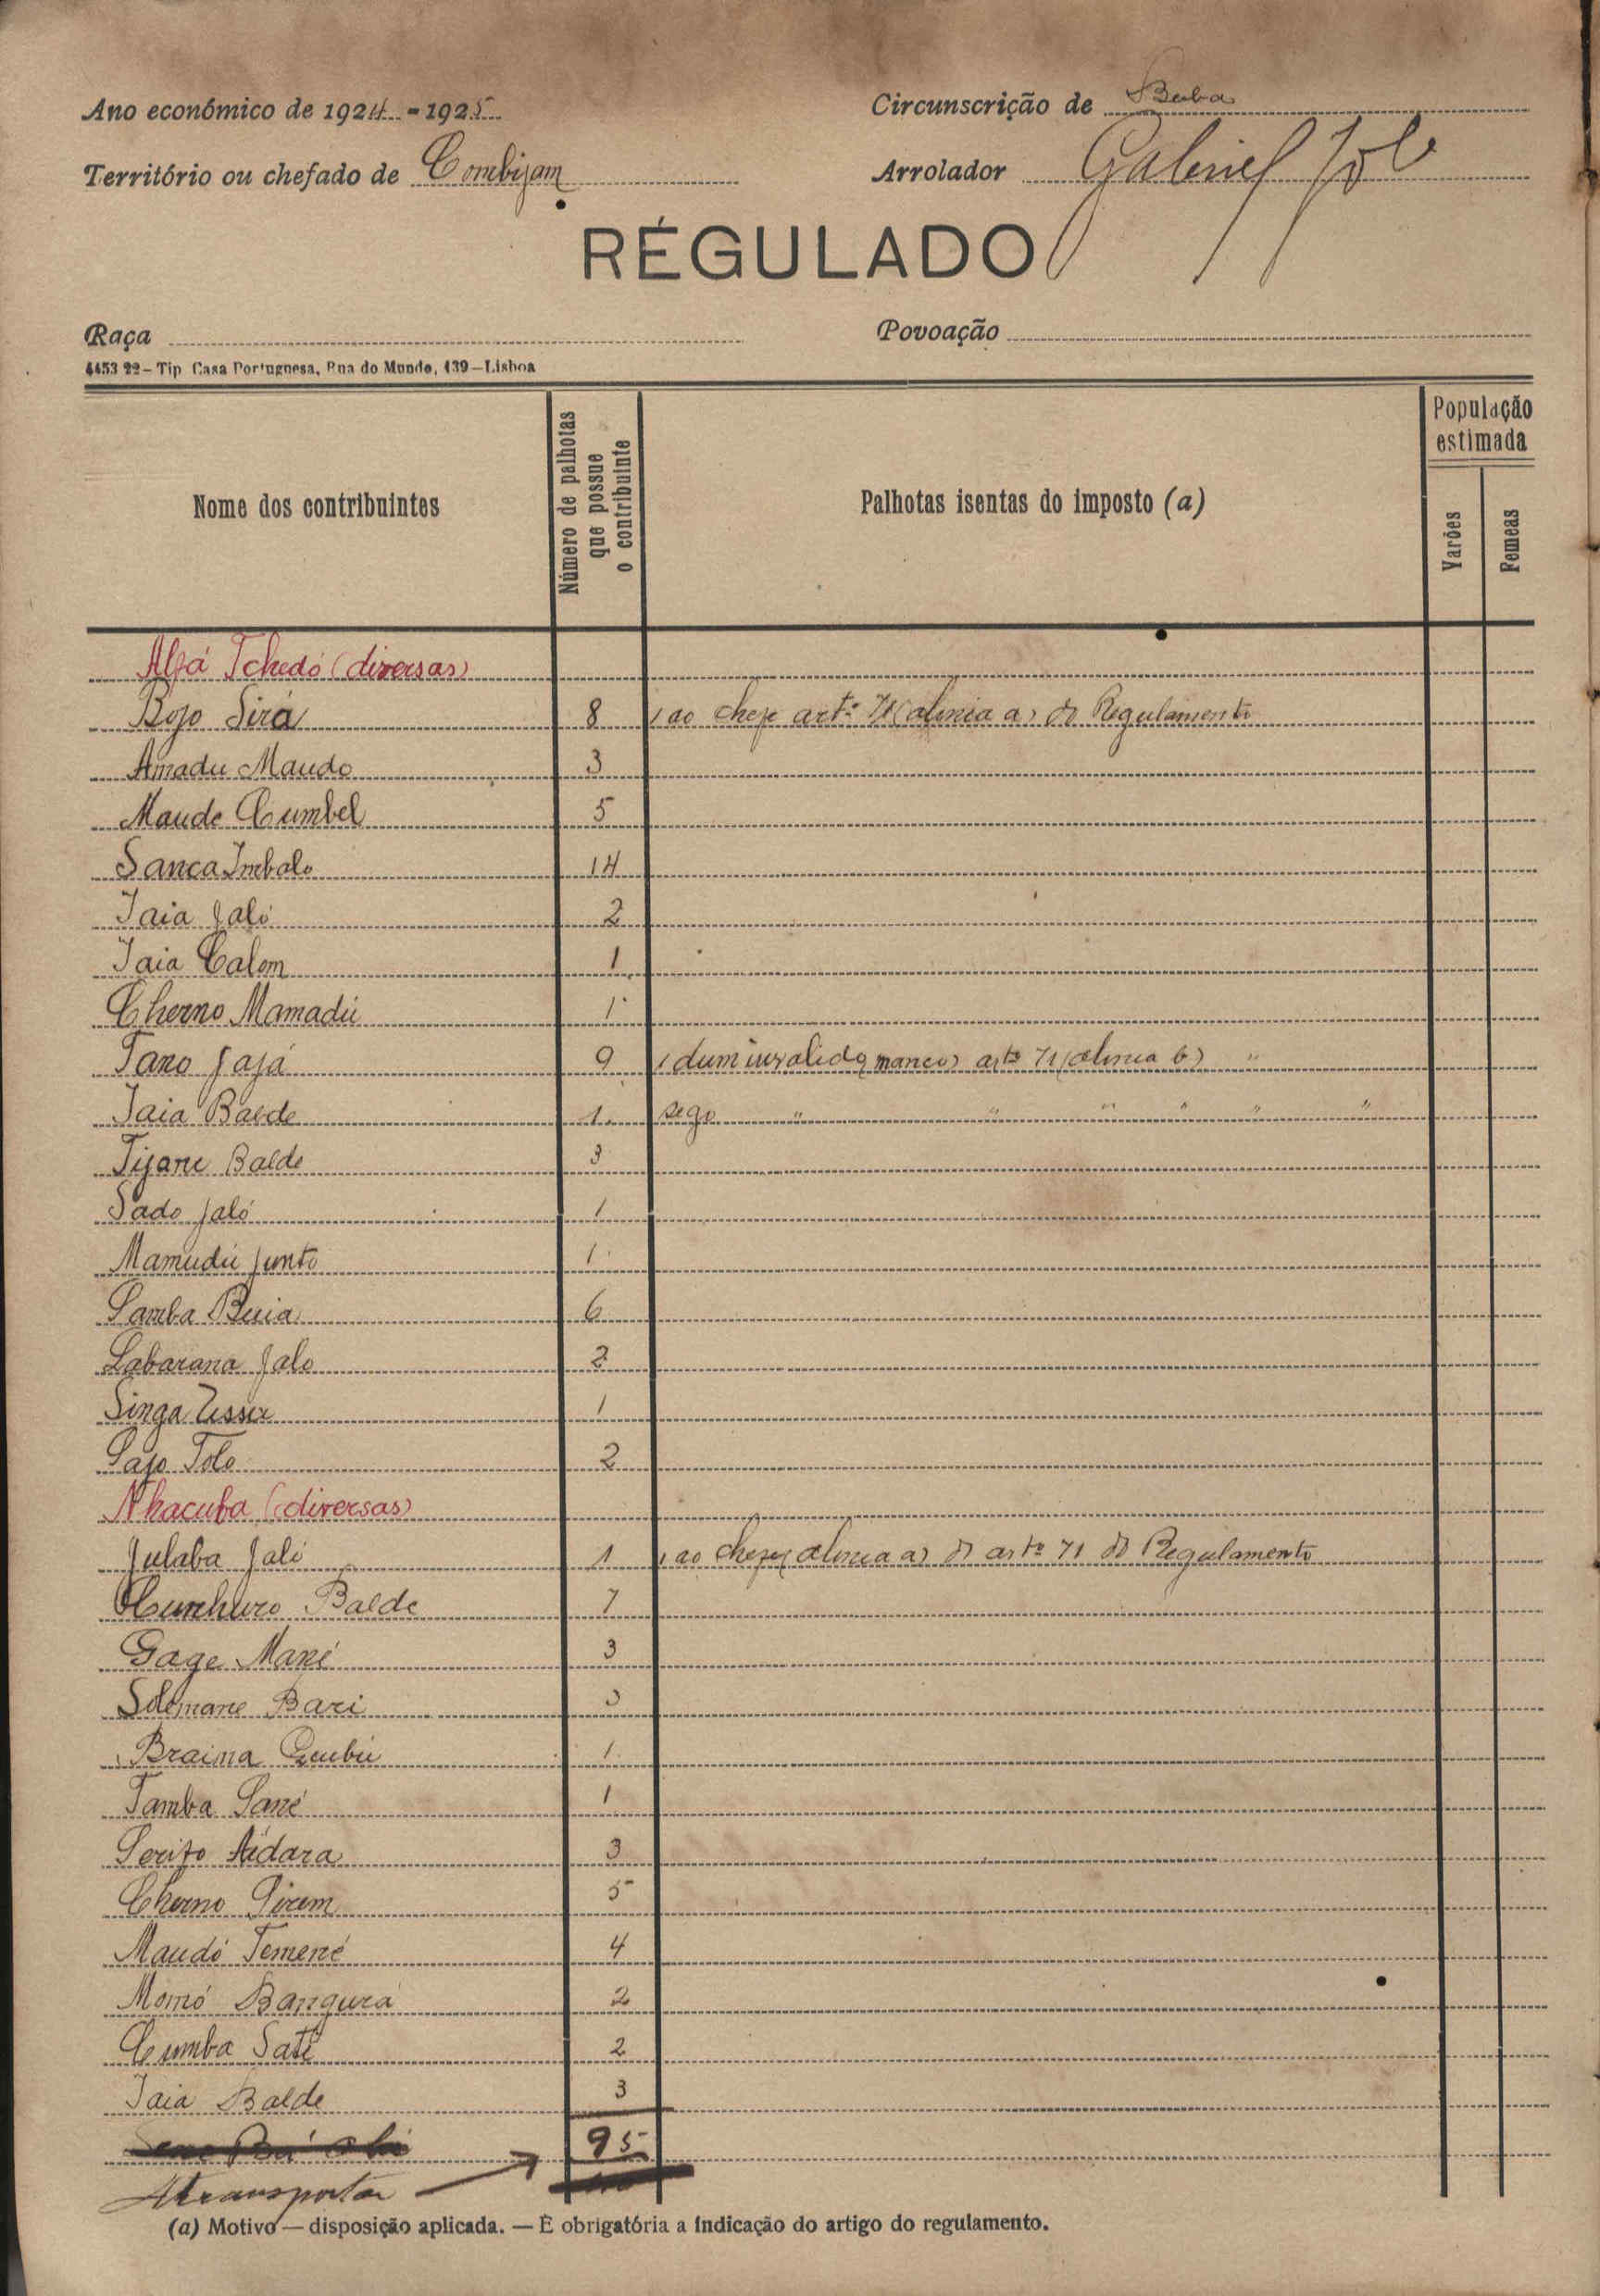 Ano económico de 1924 - 1925 Circunscrição de Buba
Território ou chefado de Combijam Arrolador Gabriel
RÉGULADO
Raça Povoação
4453 22 – Tip. Casa Portuguesa, Rua do Mundo, 139 – Lisboa
Nome dos contribuintes Número de palhotas que possue o contribuinte Palhotas isentas do imposto (a) População estimada Varões Femeas
Alfá Tchedó (diversas)
Bojo Sirá 8 1 ao chefe artº 71 (alinia a) do Regulamento
Amadu Maudo 3
Maude Cumbel 5
Sanca Imbalo 14
Iaia Jaló 2
Iaia Calom 1
Cherno Mamadú 1
Tano Jajá 9 1 dum invalido (manco) artº 71 (alinia b) "
Iaia Balde 1 sego " " " " " "
Tijane Balde 3
Sado Jaló 1
Mamudú Junto 1
Samba Buia 6
Labarana Jalo 2
Singa 1
Sajo Tolo 2
Nhacuba (diversas)
Julaba Jaló 1 1 ao chefe (alinia a) do artº 71 do Regulamento
Cunhuro Balde 7
Gage Mané 3
Solemane Bari 3
Braima 1
Tamba Sané 1
Serifo Aidara 3
Cherno 5
Maudó Temené 4
Momó Bangura 2
Cumba Sati 2
Iaia Balde 3
95
A transportar
(a) Motivo — disposição aplicada. — É obrigatória a indicação do artigo do regulamento.